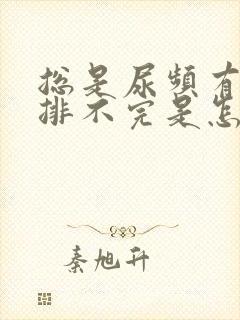 总是尿频有
排不完是怎
秦旭升